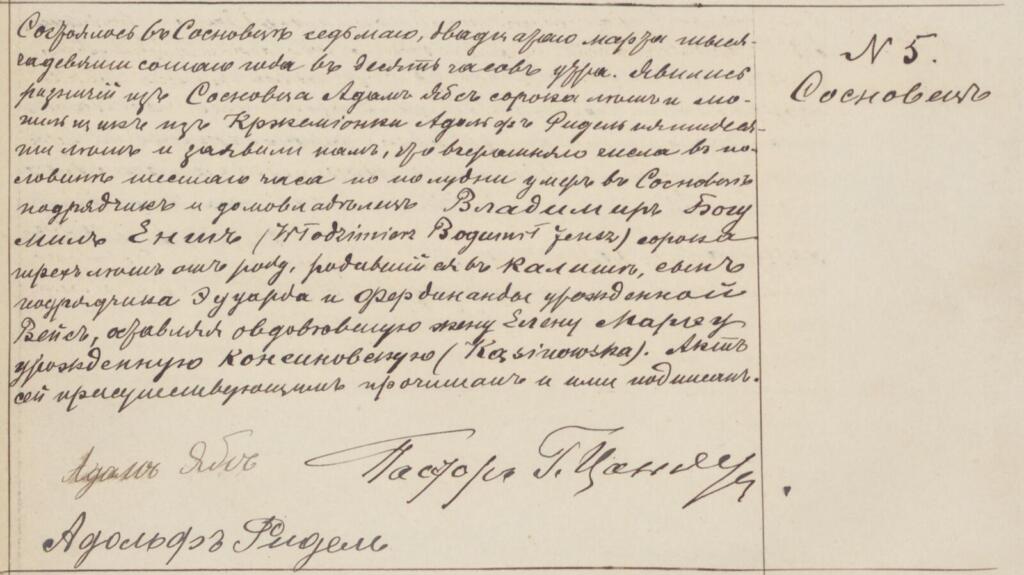 Состоялось въ Сосновцѣ седьмаго, двадцатаго марта тыся-
ча девятисотаго года въ десять часовъ утра. Явились
рѣзничій изъ Сосновца Адамъ Ябсъ сорока лѣтъ и мо-
гильщикъ изъ Кржеміонки Адольфъ Ридель пятидеся-
ти лѣтъ и заявили намъ, что вчерашняго числа въ по-
ловинѣ шестаго часа по полудни умеръ въ Сосновцѣ
подрядчикъ и домовладѣлецъ Владимиръ Богу
милъ Енчъ (Włodzimierz Bogumił Jencz) сорока
трехъ лѣтъ отъ роду, родившійся въ Калишѣ, сынъ
подрядчика Эдуарда и Фердинанды урожденной
Вейсъ, оставляя овдовѣвшую жену Елену Марту
урожденную Консиновскую (Kąsinowska). Актъ
сей присутствующимъ прочитанъ и ими подписанъ.
N 5.
Сосновецъ
Адамъ Ябсъ
Пасторъ Г.
Адольфъ Ридель